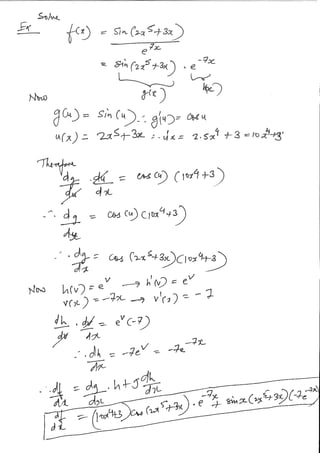 Solve
Ex f(x) = Sin (2x⁵+3x)
e⁷ˣ
= sin (2x⁵+3x) . e⁻⁷ˣ
g(x) h(x)
Now
g(u) = Sin (u) ∴ g'(u) = cos u
u(x) = 2x⁵+3x ∴ u'x = 2.5x⁴ + 3 = 10x⁴+3
Therefore
dg/du . du/dx = cos (u) (10x⁴+3)
∴ dg/dx = cos (u) (10x⁴+3)
∴ dg/dx = cos (2x⁵+3x)(10x⁴+3)
Now h(v) = eᵛ → h'(v) = eᵛ
v(x) = -7x → v'(x) = -7
dh/dv . dv/dx = eᵛ(-7)
∴ dh/dx = -7eᵛ = -7e⁻⁷ˣ
∴ df/dx = dg/dx . h + g dh/dx
df/dx = (10x⁴+3) cos (2x⁵+3x) . e⁻⁷ˣ + sin x (2x⁵+3x)(-7e⁻⁷ˣ)